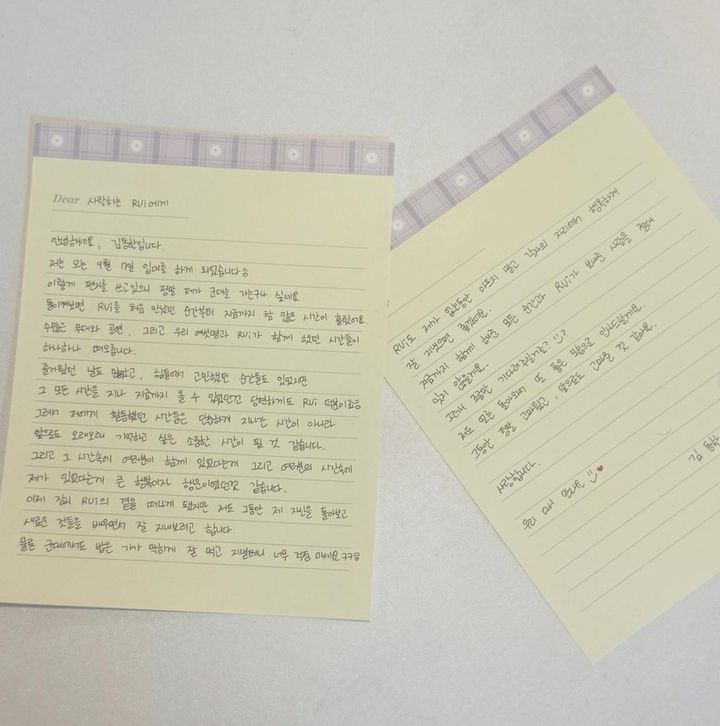 Dear 사랑하는 RUi에게
안녕하세요, 김동한입니다.
저는 오는 9월 7일 입대를 하게 되었습니다ㅎ
이렇게 편지를 쓰고있으니 정말 제가 군대를 가는구나 싶네요
돌이켜보면 RUi를 처음 만났던 순간부터 지금까지 참 많은 시간이 흘렀어요.
수많은 무대와 공연, 그리고 우리 여섯명과 RUi가 함께 했던 시간들이
하나하나 떠오릅니다.
즐거웠던 날도 많았고, 힘들어서 고민했던 순간들도 있었지만
그 모든 시간을 지나 지금까지 올 수 있었던건 당연하게도 RUi 덕분이죠ㅎ
그래서 저에게 활동했던 시간들은 단순하게 지나간 시간이 아니라
앞으로도 오래오래 기억하고 싶은 소중한 시간이 될 것 같습니다.
그리고 그 시간속에 여러분이 함께 있었다는게 그리고 여러분의 시간속에
제가 있었다는게 큰 행복이자 행운이였던것 같습니다.
이제 잠시 RUi의 곁을 떠나게 됐지만 저도 그동안 제 자신을 돌아보고
새로운 것들을 배우면서 잘 지내보려고 합니다.
물론 군대에서도 밥은 기가 막히게 잘 먹고 지낼테니 너무 걱정 마세요ㅋㅋㅎ
RUi도 제가 없는동안 아프지 말고 각자의 자리에서 행복하게
잘 지냈으면 좋겠어요.
지금까지 함께 해준 모든 순간과 RUi가 보내준 사랑을 절대
잊지 않을게요.
그러니 조금만 기다려주실거죠? :)?
저도 멋는 돌아와서 또 좋은 모습으로 인사드릴게요.
그동안 정말 고마웠고, 앞으로도 고마울 것 같아요.
사랑합니다.
김동한
우리 다시 만나요 :) ♥